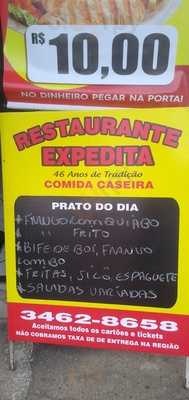 R$ 10,00
NO DINHEIRO PEGAR NA PORTA!
RESTAURANTE
EXPEDITA
46 Anos de Tradição
COMIDA CASEIRA
PRATO DO DIA
* FRANGO COM QUIABO
* " " FRITO
* BIFE DE BOI, FRANGO
LOMBO
* FRITAS, ESPAGUETE
* SALADAS VARIADAS
3462-8658
Aceitamos todos os cartões e tickets
NÃO COBRAMOS TAXA DE DE ENTREGA NA REGIÃO